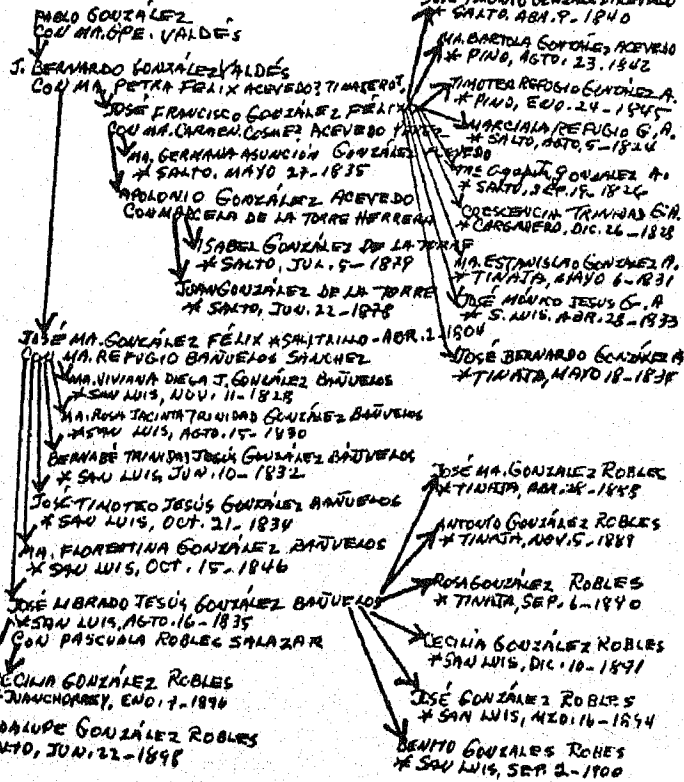 PABLO GONZÁLEZ
CON MA. GPE. VALDÉS
J. BERNARDO GONZÁLEZ VALDÉS
CON MA. PETRA FELIX ACEVEDO?
JOSÉ FRANCISCO GONZÁLEZ FÉLIX
CON MA. CARMEN ACEVEDO
MA. GERMANA ASUNCIÓN GONZÁLEZ ACEVEDO
* SALTO, MAYO 27-1835
APOLONIO GONZÁLEZ ACEVEDO
CON MARCELA DE LA TORRE HERRERA
ISABEL GONZÁLEZ DE LA TORRE
* SALTO, JUL. 5-1879
JUAN GONZÁLEZ DE LA TORRE
* SALTO, JUN. 22-1878
JOSÉ MA. GONZÁLEZ FÉLIX * SALITRILLO-ABR. 2-1804
CON MA. REFUGIO BAÑUELOS SÁNCHEZ
MA. VIVIANA DIEGA J. GONZÁLEZ BAÑUELOS
* SAN LUIS, NOV. 11-1828
MA. ROSA JACINTA TRINIDAD GONZÁLEZ BAÑUELOS
* SAN LUIS, AGTO. 15-1830
BERNABÉ TRINIDAD JESÚS GONZÁLEZ BAÑUELOS
* SAN LUIS, JUN. 10-1832
JOSÉ TIMOTEO JESÚS GONZÁLEZ BAÑUELOS
* SAN LUIS, OCT. 21-1834
MA. FLORENTINA GONZÁLEZ BAÑUELOS
* SAN LUIS, OCT. 15-1846
JOSÉ LIBRADO JESÚS GONZÁLEZ BAÑUELOS
* SAN LUIS, AGTO. 16-1835
CON PASCUALA ROBLES SALAZAR
CECILIA GONZÁLEZ ROBLES
* JUANCHORREY, ENO. 7-1896
GONZÁLEZ ROBLES
JUN. 22-1898
* SALTO, ABR. 9-1840
MA. BARTOLA GONZÁLEZ ACEVEDO
* PINO, AGTO. 23-1842
TIMOTEA REFUGIO GONZÁLEZ A.
* PINO, ENO. 24-1845
MARCIALA REFUGIO G. A.
* SALTO, AGTO. 5-1824
GONZALEZ A.
* SALTO, SEP. 19-1826
CRESCENCIA TRINIDAD G. A.
* CARGADERO, DIC. 26-1828
MA. ESTANISLAO GONZALEZ A.
* TINAJA, MAYO 6-1831
JOSÉ MÓNICO JESUS G. A
* S. LUIS, ABR. 28-1833
JOSÉ BERNARDO GONZÁLEZ A
* TINAJA, MAYO 18-1838
JOSÉ MA. GONZALEZ ROBLES
* TINAJA, ABR. 28-1888
ANTONIO GONZÁLEZ ROBLES
* TINAJA, NOV. 5-1889
ROSA GONZÁLEZ ROBLES
* TINAJA, SEP. 6-1890
CECILIA GONZÁLEZ ROBLES
* SAN LUIS, DIC. 10-1891
JOSÉ GONZÁLEZ ROBLES
* SAN LUIS, MZO. 16-1894
BENITO GONZALES ROBES
* SAN LUIS, SEP. 2-1900